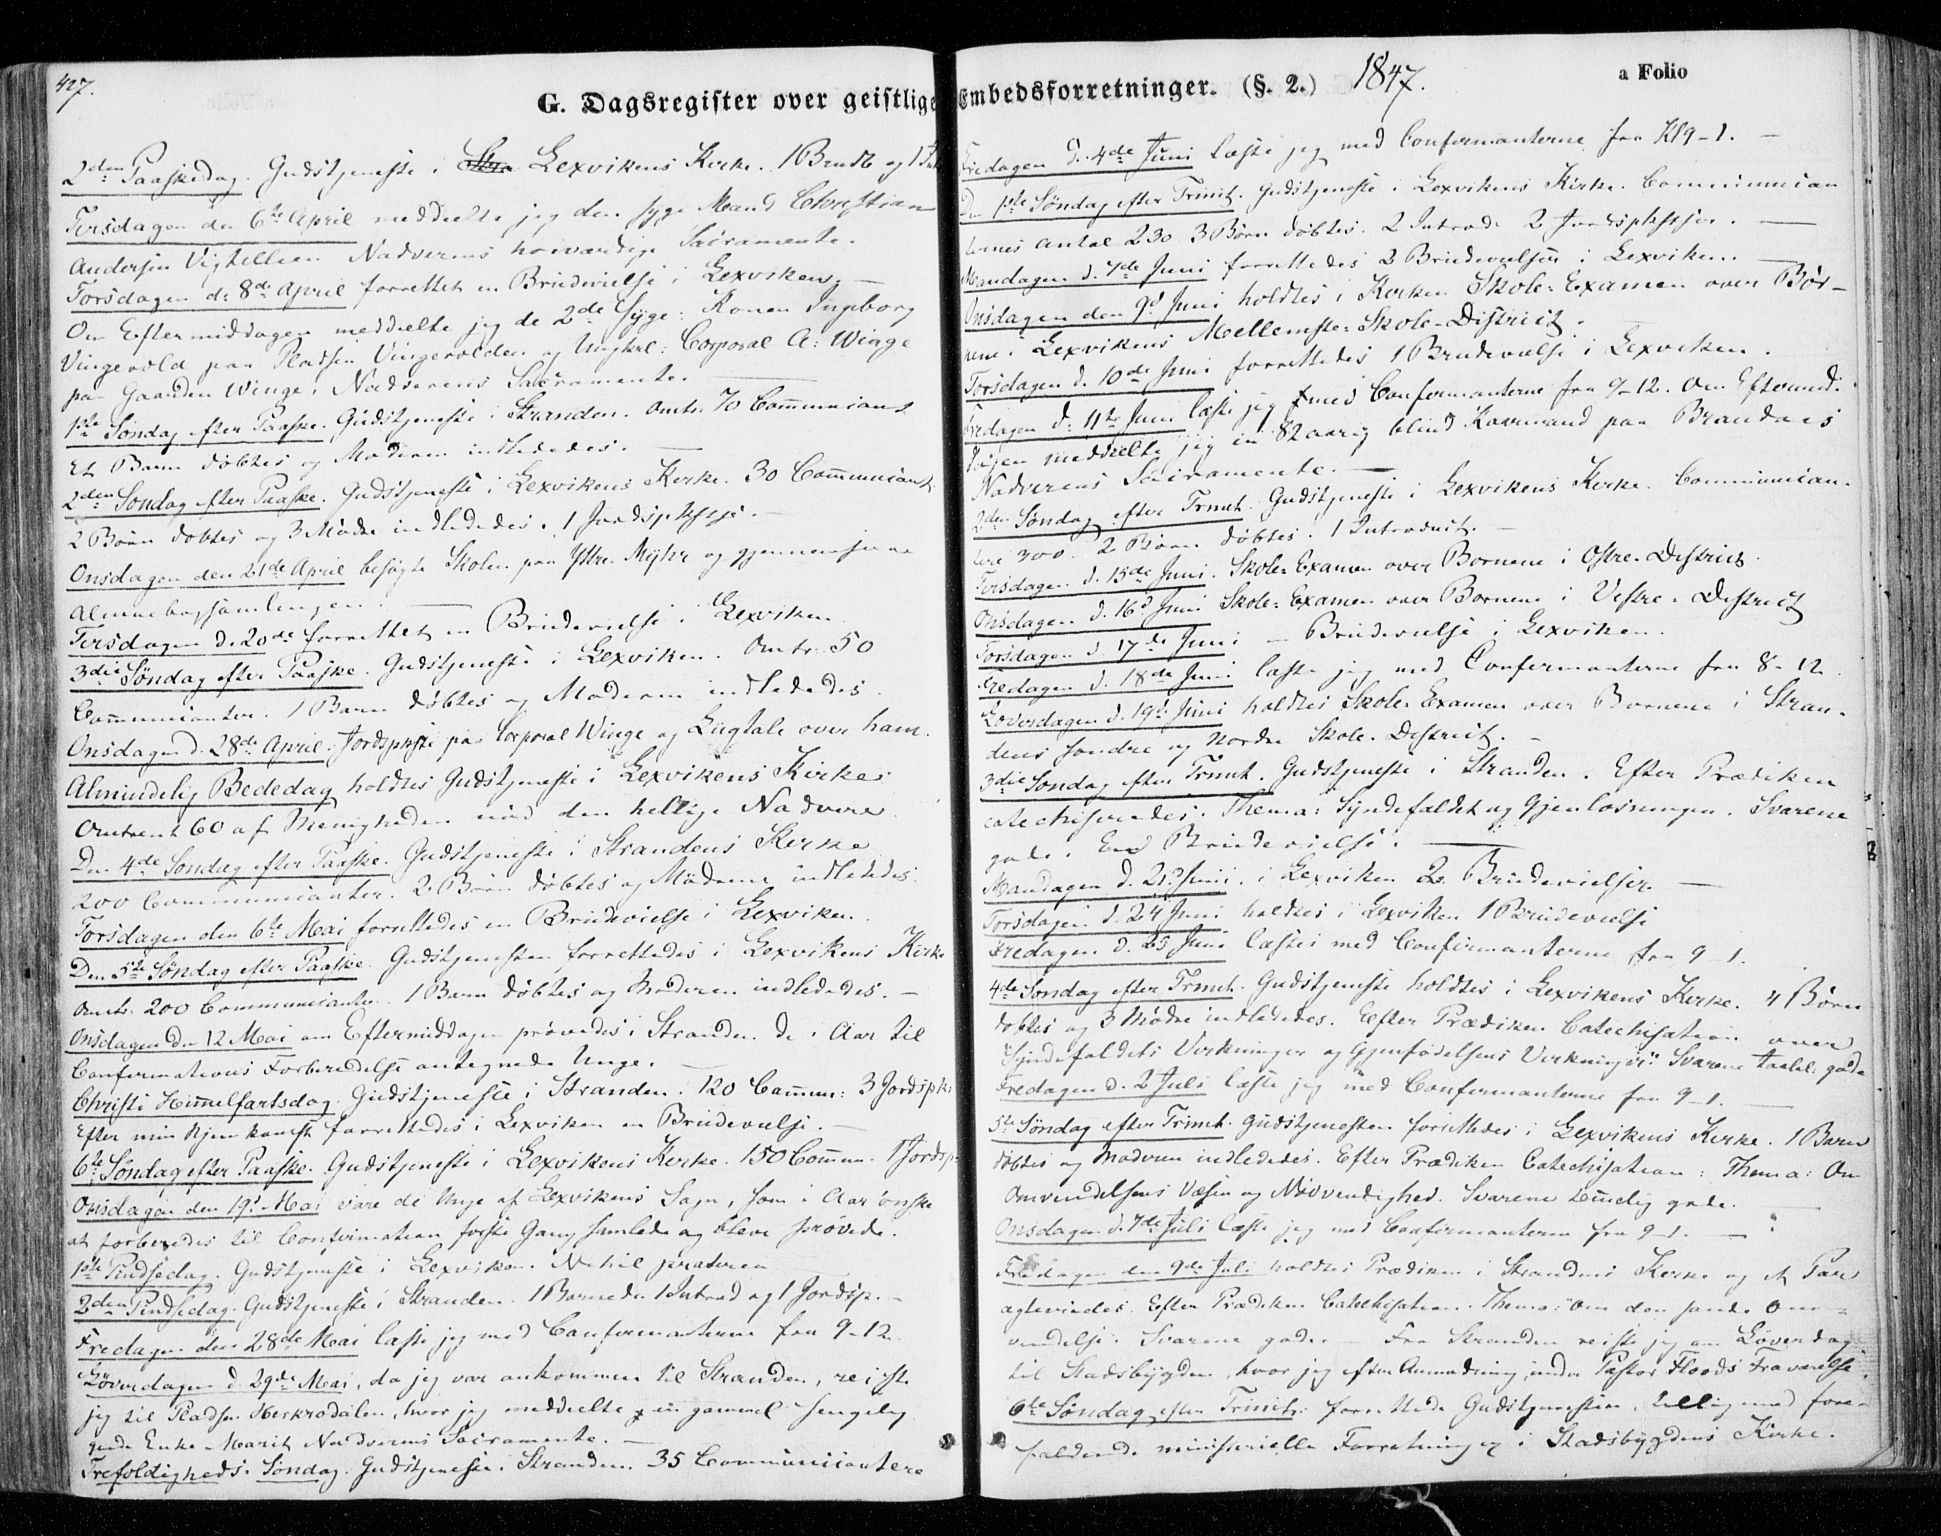 427.
G. Dagsregister over geistlige
2den Paaskedag. Gudstjeneste i Lexvikens Kirke. 1 Brudev. og 1
Tirsdagen den 6te April meddeelte jeg den syge Mand Christian
Andersen Nadverens høiværdige Sacramente.
Torsdagen d. 8de April forrettet en Brudevielse i Lexviken. —
Om Eftermiddagen meddeelte jeg de 2de Syge: Konen Ingeborg
Vingevold paa Pladsen Vingevolden og Corporal A: Winge
paa Gaarden Winge, Nadverens Sacramente. —
1ste Søndag efter Paaske. Gudstjeneste i Stranden. Omtr. 70 Communicant.
Et Barn døbtes og Moderen indlededes. —
2den Søndag efter Paaske. Gudstjeneste i Lexvikens Kirke. 30 Communicant.
2 Børn døbtes og 3 Mødre indlededes. 1 Jordspkelse. —
Onsdagen den 21de April besøgte Skolen paa Ytre Myhr og gjennemsaae
Almuebogsamlingen. —
Tirsdagen d. 20de forrettet en Brudevielse i Lexviken
3die Søndag efter Paaske. Gudstjeneste i Lexviken. Omtr. 50
Communicanter. 1 Barn døbtes og Moderen indlededes.
Onsdagen d. 28de April. Jordspkelse paa Corporal Winge og Liigtale over ham.
Almindelig Bededag holdtes Gudstjeneste i Lexvikens Kirke.
Omtrent 60 af Menigheden nød den hellige Nadvere.
Den 4de Søndag efter Paaske. Gudstjeneste i Strandens Kirke
200 Communicanter. 2 Børn døbtes og Mødrene indlededes.
Torsdagen den 6te Mai forrettedes en Brudevielse i Lexviken.
Den 5te Søndag efter Paaske. Gudstjenesten forrettedes i Lexvikens Kirke
Omtr. 200 Communicanter. 1 Barn døbtes og Moderen indlededes. —
Onsdagen d. 12 Mai om Eftermiddagen prøvedes i Stranden de i Aar til
Confirmations Forberedelse antegnede Unge. —
Christi Himmelfartsdag. Gudstjeneste i Stranden. 120 Commun: 3 Jordspk.
Efter min Hjemkomst forrettedes i Lexviken en Brudevielse. —
6te Søndag efter Paaske. Gudstjeneste i Lexvikens Kirke. 150 Commun. 1 Jordsp.
Onsdagen den 19d. Mai vare de Unge af Lexvikens Sogn, som i Aar ønske
at forberedes til Confirmation første Gang samlede og bleve prøvede.
1ste Pindsedag. Gudstjeneste i Lexviken. Nihil præterea —
2den Pindsedag. Gudstjeneste i Stranden. 1 Barned. 1 Introd og 1 Jordsp. —
Fredagen den 28de Mai læste jeg med Confirmanterne fra 9-12.
Løverdagen d. 29de Mai, da jeg var ankommen til Stranden, reiste
jeg til Pladsen Herkrodalen, hvor jeg meddeelte en gammel sengelig
gende Enke Marit Nadverens Sacramente. —
Trefoldigheds-Søndag. Gudstjeneste i Stranden. 35 Communicantere
Embedsforretninger. (§. 2.) 1847.
a Folio
Fredagen d. 4de Juni læste jeg med Confirmanterne fra Kl 9-1. —
Den 1ste Søndag efter Trinit. Gudstjeneste i Lexvikens Kirke. Communican
ternes Antal 230. 3 Børn døbtes. 2 Introd. 2 Jordspkelser. —
Mandagen d. 7de Juni forrettedes 2 Brudevielser i Lexviken. —
Onsdagen den 9d Juni holdtes i Kirken Skole-Examen over Bør-
nene i Lexvikens Mellemste Skole-District. —
Torsdagen d. 10de Juni forrettedes 1 Brudevielse i Lexviken.
Fredagen d. 11te Juni læste jeg med Confirmanterne fra 9-12. Om Eftermid-
dagen meddeelte jeg en 82 aarig blind Kaarmand paa Brandaas
Nadverens Sacramente. —
2den Søndag efter Trinit. Gudstjeneste i Lexvikens Kirke. Communican-
tere 300. 2 Børn døbtes. 1 Introduct. —
Tirsdagen d. 15de Juni. Skole-Examen over Børnene i Østre-District.
Onsdagen d. 16d Juni Skole-Examen over Børnene i Vestre-District
Torsdagen d. 17de Juni — Brudevielse i Lexviken.
Fredagen d. 18de Juni læste jeg med Confirmanterne fra 8-12.
Løverdagen d. 19d Juni holdtes Skole-Examen over Børnene i Stran-
dens søndre og nordre Skole-District. —
3die Søndag efter Trinit. Gudstjeneste i Stranden. Efter Prædiken
catechiseredes. Thema: Syndefaldet og Gjenløsningen. Svarene
gode. En Brudevielse. —
Mandagen d. 21d Juni. i Lexviken 2 Brudevielser —
Torsdagen d. 24 Juni holdtes i Lexviken 1 Brudevielse
Fredagen d. 25 Juni læstes med Confirmanterne fra 9-1.
4de Søndag efter Trinit. Gudstjeneste holdtes i Lexvikens Kirke. 4 Børn
døbtes og 3 Mødre indlededes. Efter Prædiken Catechisation over
"Syndefaldets Virkninger og Gjenfødelsens Virkninger". Svarene taalel. gode
Fredagen d. 2 Juli læste jeg med Confirmanterne fra 9-1. —
5te Søndag efter Trinit. Gudstjenesten forrettedes i Lexvikens Kirke. 1 Barn
døbtes og Moderen indlededes. Efter Prædiken Catechisation: Thema: Om
Omvendelsens Væsen og Nødvendighed. Svarene temmelig gode.
Onsdagen d. 7de Juli læste jeg med Confirmanterne fra 9-1. —
Fredagen den 9de Juli holdtes Prædiken i Strandens Kirke og et Par
agteviedes. Efter Prædiken Catechisation. Thema: Om den sande Om-
vendelse. Svarene gode. — Fra Stranden reiste jeg om Løverdag
til Stadsbygden, hvor jeg efter Anmodning, under Pastor Floods Fraværelse,
6te Søndag efter Trinit: forrettede Gudstjenesten, tilligemed fore-
faldende ministerielle Forretninger i Stadsbygdens Kirke.